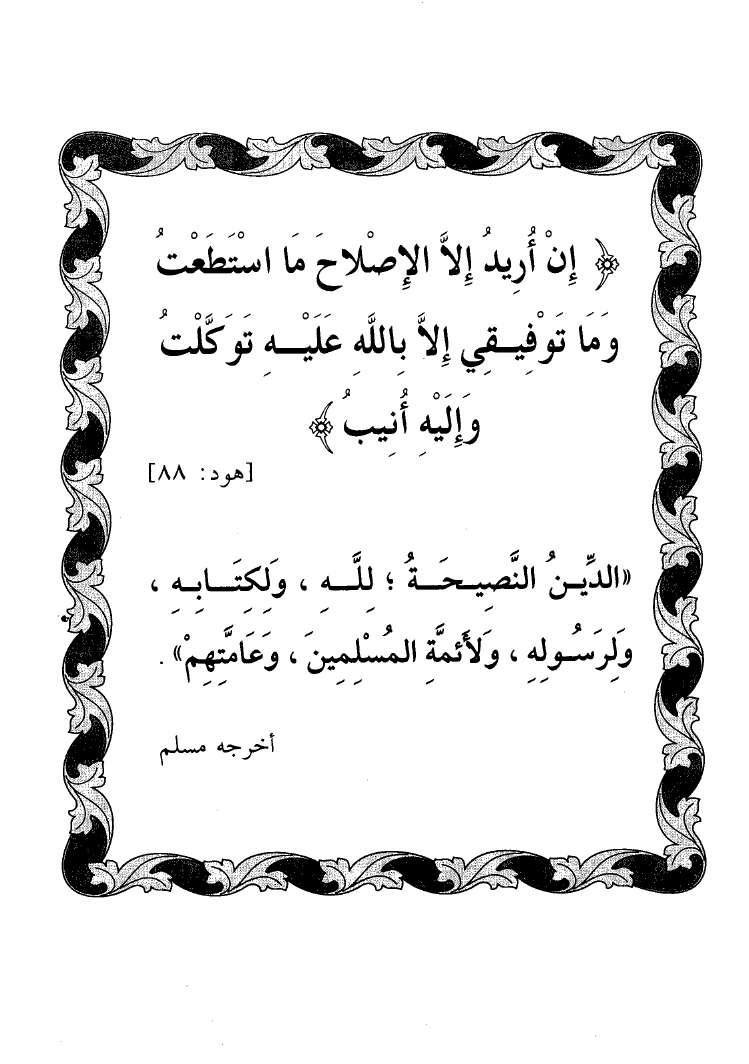 ﴿ إِنْ أُرِيدُ إِلاَّ الإِصْلاحَ مَا اسْتَطَعْتُ
وَمَا تَوْفِيـقِي إِلاَّ بِاللَّهِ عَلَيْـهِ تَوَكَّلْتُ
وَإِلَيْهِ أُنِيبُ ﴾
[هود: ٨٨]
«الدِّيـنُ النَّصِيـحَـةُ ؛ لِلَّـهِ ، وَلِكِتَـابِـهِ ،
وَلِرَسُـولِهِ ، وَلأَئمَّةِ المُسْلِمِينَ ، وَعَامَّتِهِمْ» .
أخرجه مسلم